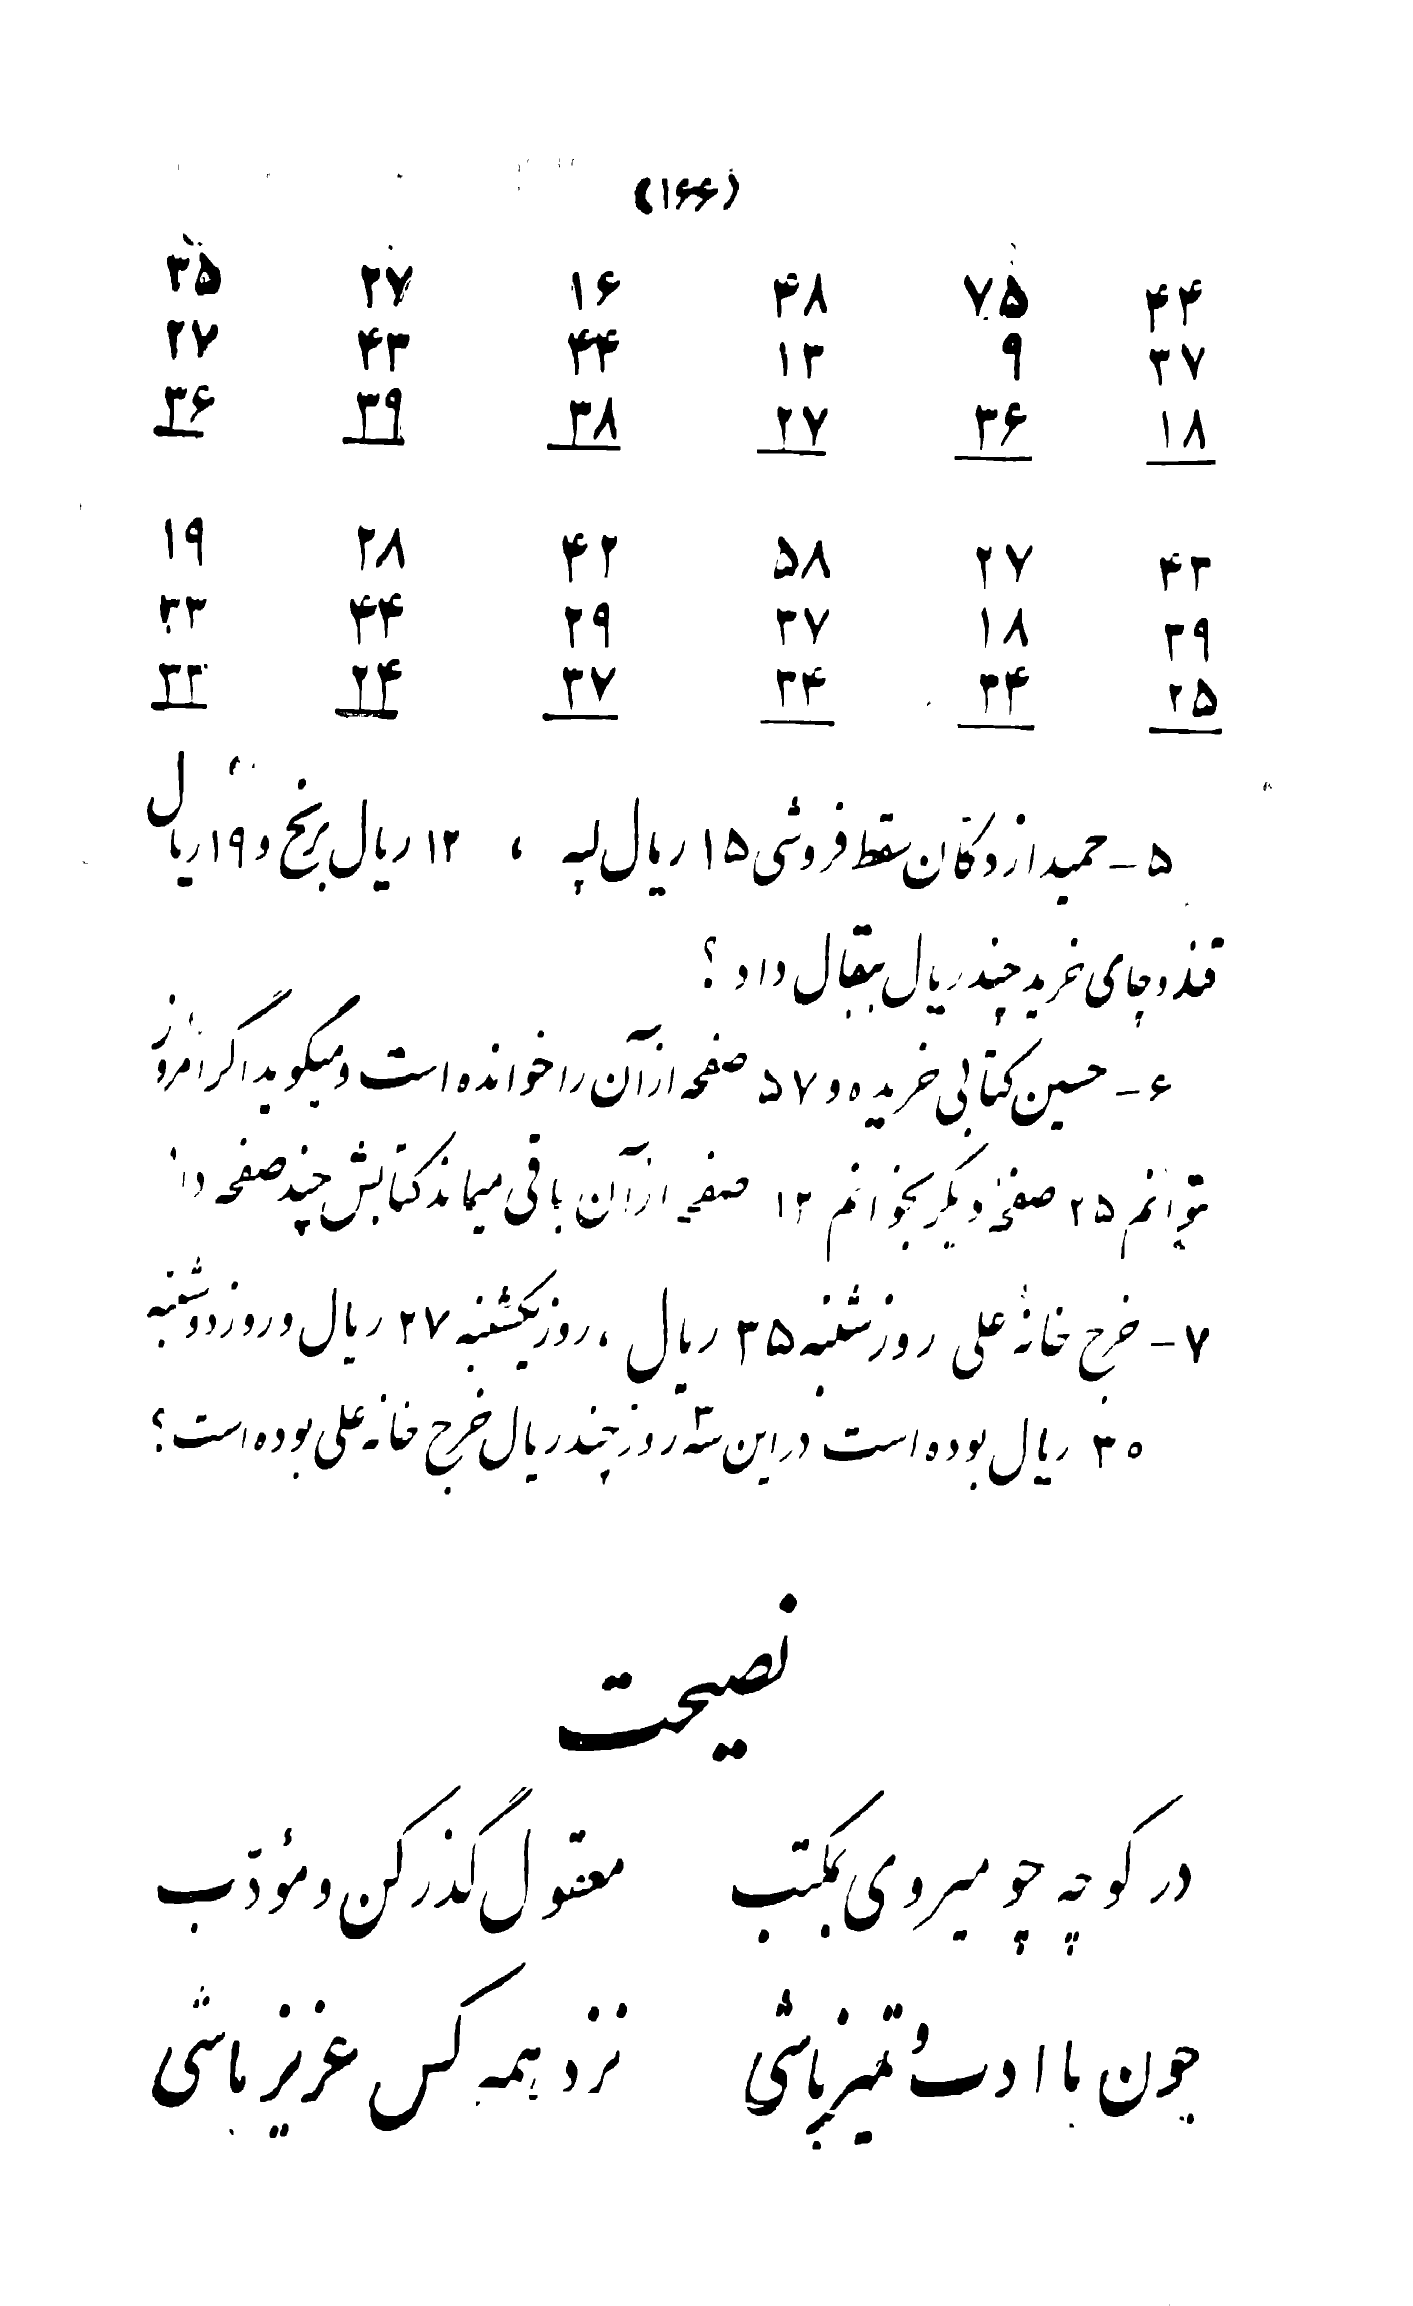 (۱۶۶)
۴۴ ۷۵ ۴۸ ۱۶ ۲۷ ۳۵
۳۷ ۹ ۱۳ ۴۴ ۴۳ ۲۷
۱۸ ۳۶ ۲۷ ۳۸ ۳۹ ۳۶
۴۳ ۲۷ ۵۸ ۴۲ ۲۸ ۱۹
۳۹ ۱۸ ۳۷ ۲۹ ۴۴ ۳۳
۲۵ ۳۴ ۳۴ ۳۷ ۲۴ ۳۳
۵ - حمید از دکان سقط فروشی ۱۵ ریال لپه ، ۱۲ ریال برنج و ۱۹ ریال
قند و چای خرید چند ریال ببقال داد ؟
۶ - حسین کتابی خریده و ۵۷ صفحه از آن را خوانده است و میگوید اگر امروز
بتوانم ۲۵ صفحه دیگر بخوانم ۱۳ صفحه از آن باقی میماند کتابش چند صفحه دا
۷ - خرج خانهٔ علی روز شنبه ۳۵ ریال ، روز یکشنبه ۲۷ ریال و روز دوشنبه
۳۰ ریال بوده است در این سه روز چند ریال خرج خانه علی بوده است ؟
نصیحت
در کوچه چو میروی بمکتب معقول گذر کن و مؤدّب
چون با ادب و تمیز باشی نزد همه کس عزیز باشی